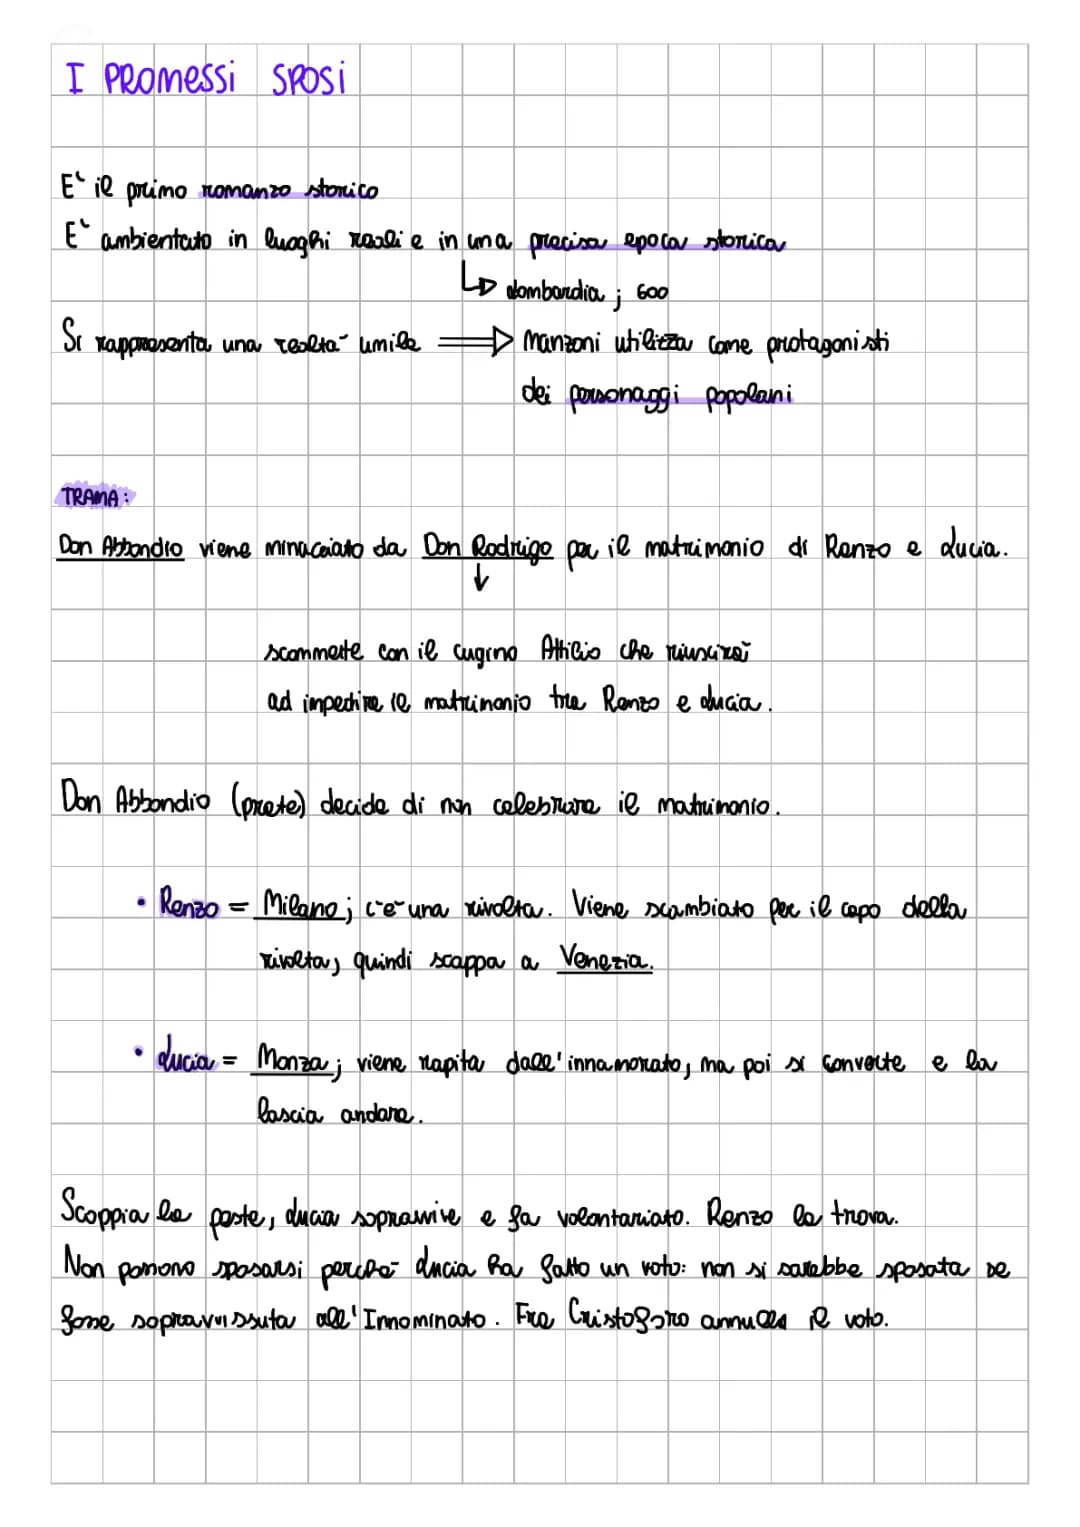 I PROMESSI SPOSI
E' il primo romanzo storico
E' ambientato in luoghi reali e in una precisa epoca storica
↳ Lombardia ; 600
Si rappresenta una realtà umile ⇒ Manzoni utilizza come protagonisti
dei personaggi popolani
TRAMA :
Don Abbondio viene minacciato da Don Rodrigo per il matrimonio di Renzo e Lucia.
↓
scommette con il cugino Attilio che riuscirà
ad impedire il matrimonio tra Renzo e Lucia.
Don Abbondio (prete) decide di non celebrare il matrimonio.
• Renzo = Milano ; c'è una rivolta. Viene scambiato per il capo della
rivolta, quindi scappa a Venezia.
• Lucia = Monza ; viene rapita dall'innamorato, ma poi si converte e la
lascia andare.
Scoppia la peste, Lucia sopravvive e fa volontariato. Renzo la trova.
Non possono sposarsi perché Lucia ha fatto un voto: non si sarebbe sposata se
fosse sopravvissuta all'Innominato. Fra Cristoforo annulla il voto.